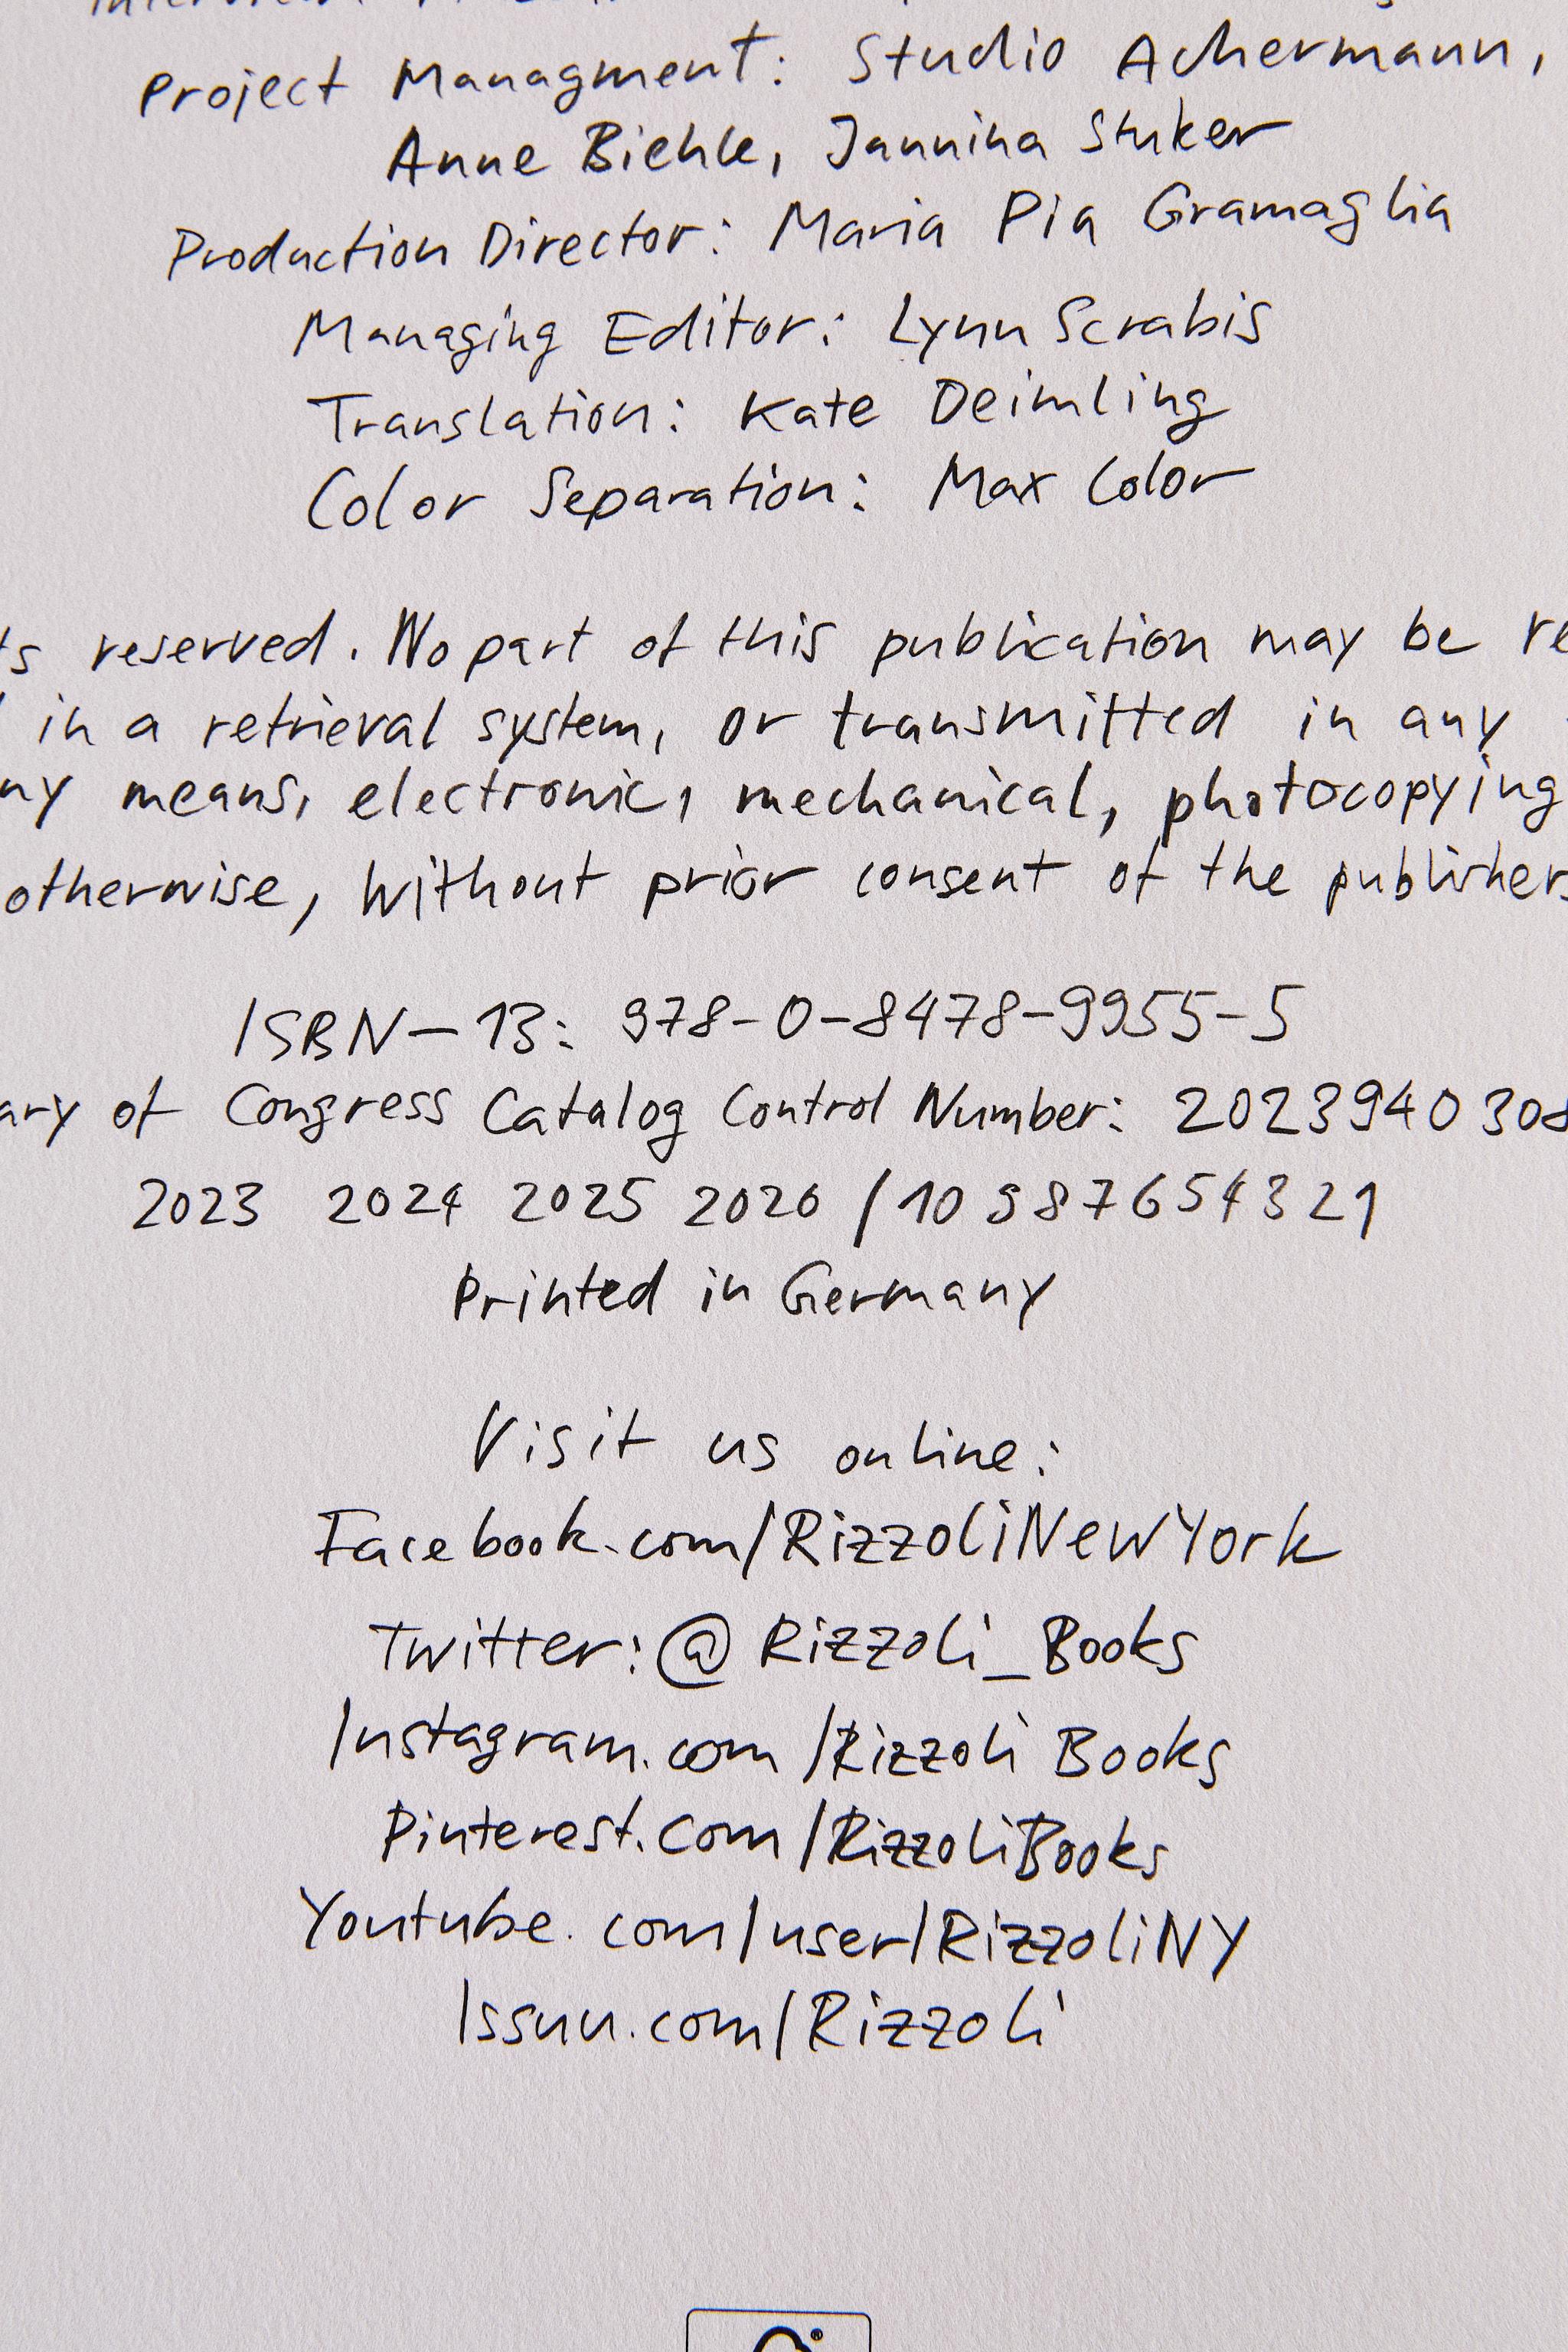 Project Managment: Studio Achermann,
Anne Biehle, Jannina Stuker
Production Director: Maria Pia Gramaglia
Managing Editor: Lynn Scrabis
Translation: Kate Deimling
Color Separation: Max Color
ts reserved. No part of this publication may be re
in a retrieval system, or transmitted in any
ny means, electronic, mechanical, photocopying
otherwise, without prior consent of the publishers
ISBN-13: 978-0-8478-9955-5
ary of Congress Catalog Control Number: 2023940308
2023 2024 2025 2026 / 10 9 8 7 6 5 4 3 2 1
Printed in Germany
Visit us online:
Facebook.com/RizzoliNewYork
Twitter: @Rizzoli_Books
Instagram.com/Rizzoli Books
Pinterest.com/RizzoliBooks
Youtube.com/user/RizzoliNY
Issuu.com/Rizzoli
®